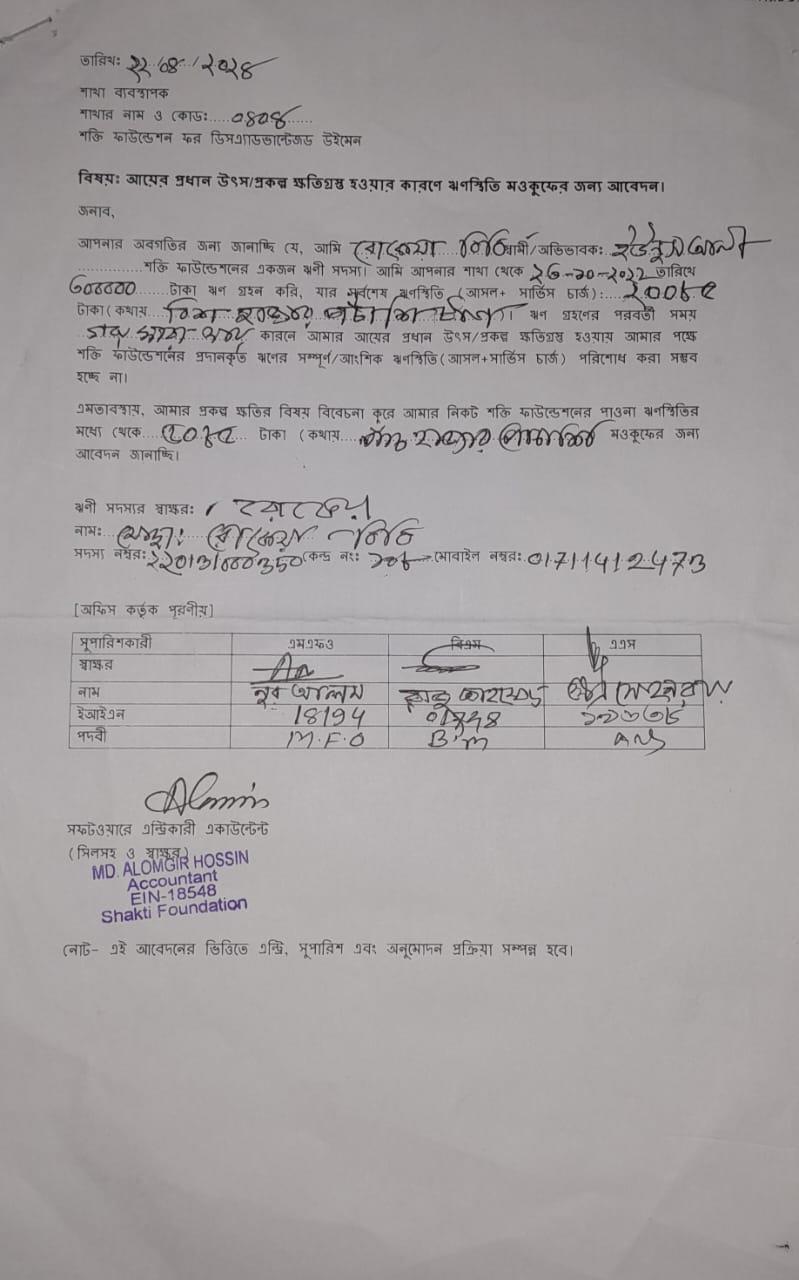 তারিখঃ ২২/০৪/২০২৪
শাখা ব্যবস্থাপক
শাখার নাম ও কোডঃ.....০৪০৪......
শক্তি ফাউন্ডেশন ফর ডিসএ্যাডভান্টেজড উইমেন
বিষয়ঃ আয়ের প্রধান উৎস/প্রকল্প ক্ষতিগ্রস্থ হওয়ার কারণে ঋণস্থিতি মওকুফের জন্য আবেদন।
জনাব,
আপনার অবগতির জন্য জানাচ্ছি যে, আমি রোকেয়া বিবি স্বামী/অভিভাবকঃ
শক্তি ফাউন্ডেশনের একজন ঋনী সদস্য। আমি আপনার শাখা থেকে ২৬-১০-২০২২ তারিখে
৬০০০০০ টাকা ঋণ গ্রহন করি, যার সর্বশেষ ঋণস্থিতি (আসল+ সার্ভিস চার্জ):....২০০৮৫
টাকা(কথায়... ঋণ গ্রহণের পরবর্তী সময়
কারনে আমার আয়ের প্রধান উৎস/প্রকল্প ক্ষতিগ্রস্থ হওয়ায় আমার পক্ষে
শক্তি ফাউন্ডেশনের প্রদানকৃত ঋণের সম্পূর্ণ/আংশিক ঋণস্থিতি(আসল+সার্ভিস চার্জ) পরিশোধ করা সম্ভব
হচ্ছে না।
এমতাবস্থায়, আমার প্রকল্প ক্ষতির বিষয় বিবেচনা করে আমার নিকট শক্তি ফাউন্ডেশনের পাওনা ঋণস্থিতির
মধ্যে থেকে....৫০৮৫... টাকা (কথায়....পাঁচ হাজার পঁচাশি মওকুফের জন্য
আবেদন জানাচ্ছি।
ঋনী সদস্যর স্বাক্ষরঃ
নামঃ মোছাঃ রোকেয়া বিবি
সদস্য নম্বরঃ কেন্দ্র নংঃ মোবাইল নম্বরঃ 01711412473
[অফিস কর্তৃক পূরণীয়]
সুপারিশকারী এমএফও বিএম এএস
স্বাক্ষর
নাম নুর আলম
ইআইএন 18194
পদবী M.F.O B.M
সফটওয়ারে এন্ট্রিকারী একাউন্টেন্ট
(সিলসহ ও স্বাক্ষর)
MD. ALOMGIR HOSSIN
Accountant
EIN-18548
Shakti Foundation
নোট- এই আবেদনের ভিত্তিতে এন্ট্রি, সুপারিশ এবং অনুমোদন প্রক্রিয়া সম্পন্ন হবে।